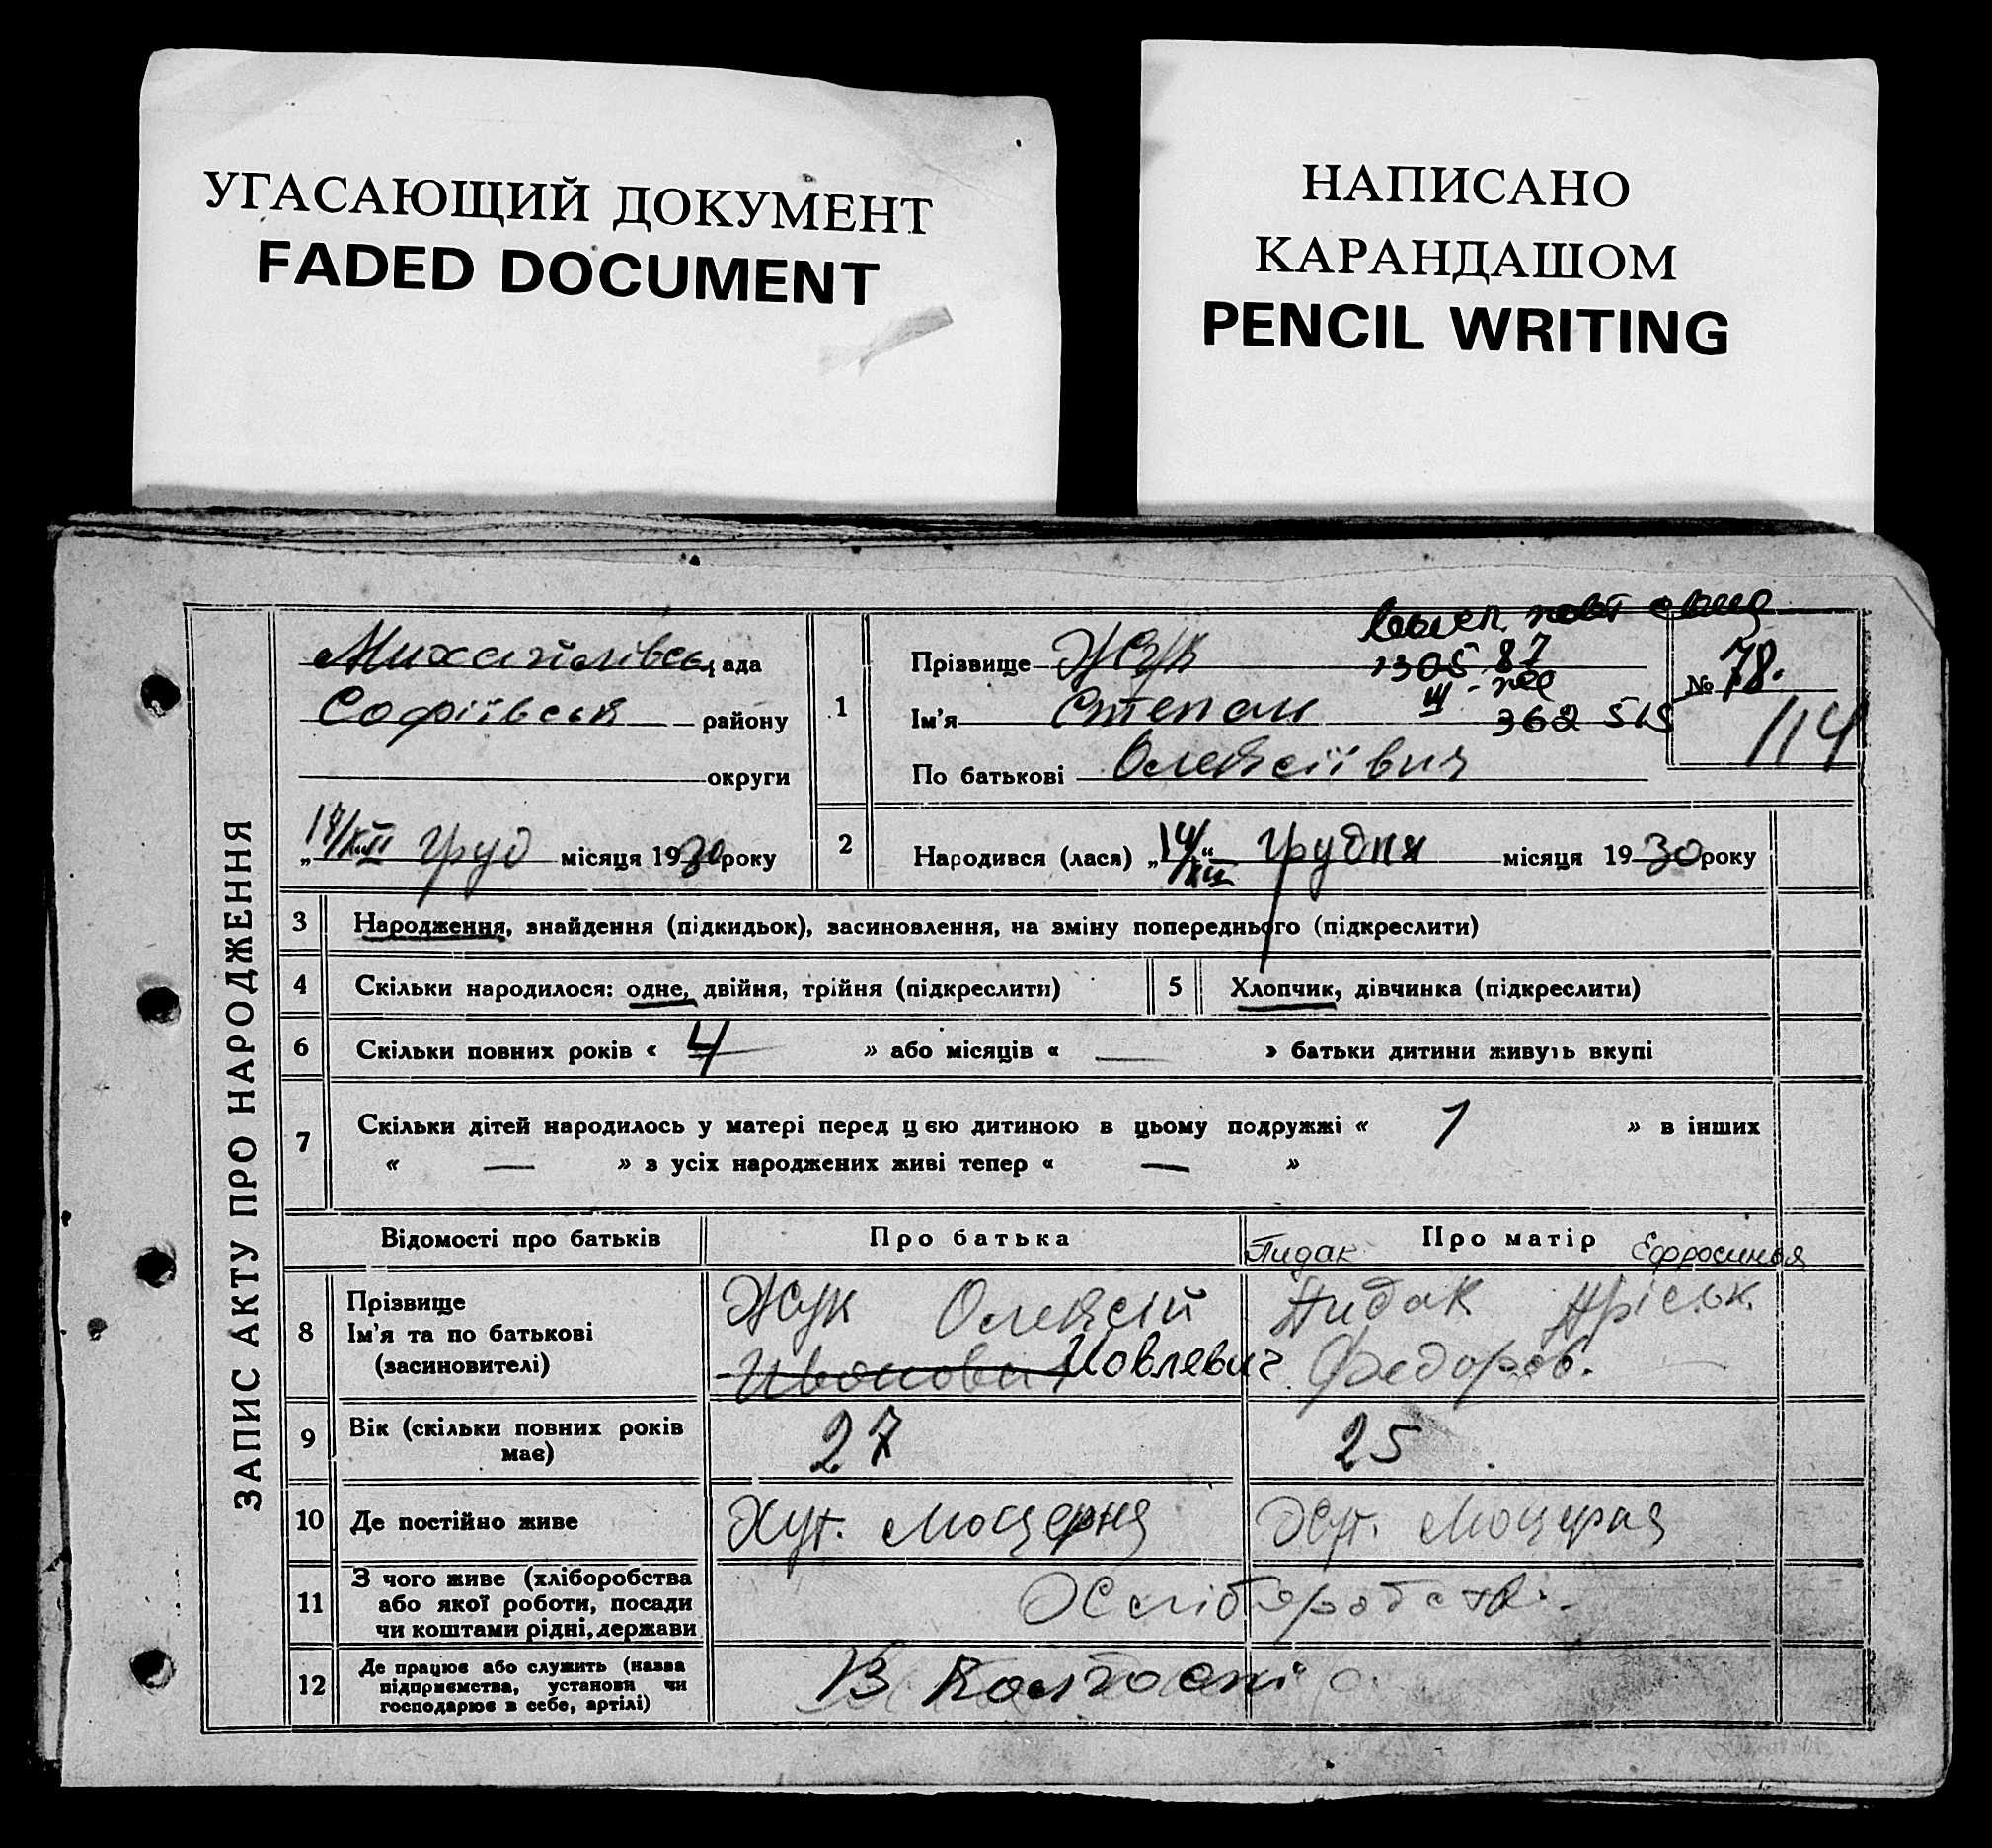 УГАСАЮЩИЙ ДОКУМЕНТ
FADED DOCUMENT
НАПИСАНО
КАРАНДАШОМ
PENCIL WRITING
ЗАПИС АКТУ ПРО НАРОДЖЕННЯ
Михайлівськ ада
Софіївськ району
округи
„ груд місяця 1930 року
1
Прізвище Жук
1305 87
Ім'я Степан
362 515
По батькові Олексіївич
№ 78.
114
2
Народився (лася) „14/XII“ грудня місяця 1930 року
3 Народження, знайдення (підкидьок), засиновлення, на зміну попереднього (підкреслити)
4 Скільки народилося: одне, двійня, трійня (підкреслити)
5 Хлопчик, дівчинка (підкреслити)
6 Скільки повних років « 4 » або місяців « — » батьки дитини живуть вкупі
7 Скільки дітей народилось у матері перед цією дитиною в цьому подружжі « 1 » в інших
« — » з усіх народжених живі тепер « — »
Відомості про батьків Про батька Про матір
Пидак Ефросинья
8 Прізвище
Ім'я та по батькові
(засиновителі)
Жук Олексій
Иовлевич
Пидак Пріськ.
Федоров.
9 Вік (скільки повних років
має)
27 25
10 Де постійно живе Хут. Хут.
11 З чого живе (хліборобства
або якої роботи, посади
чи коштами рідні, держави
Хліборобств.
12 Де працює або служить (назва
підприємства, установи чи
господарює в себе, артілі)
В колгоспі